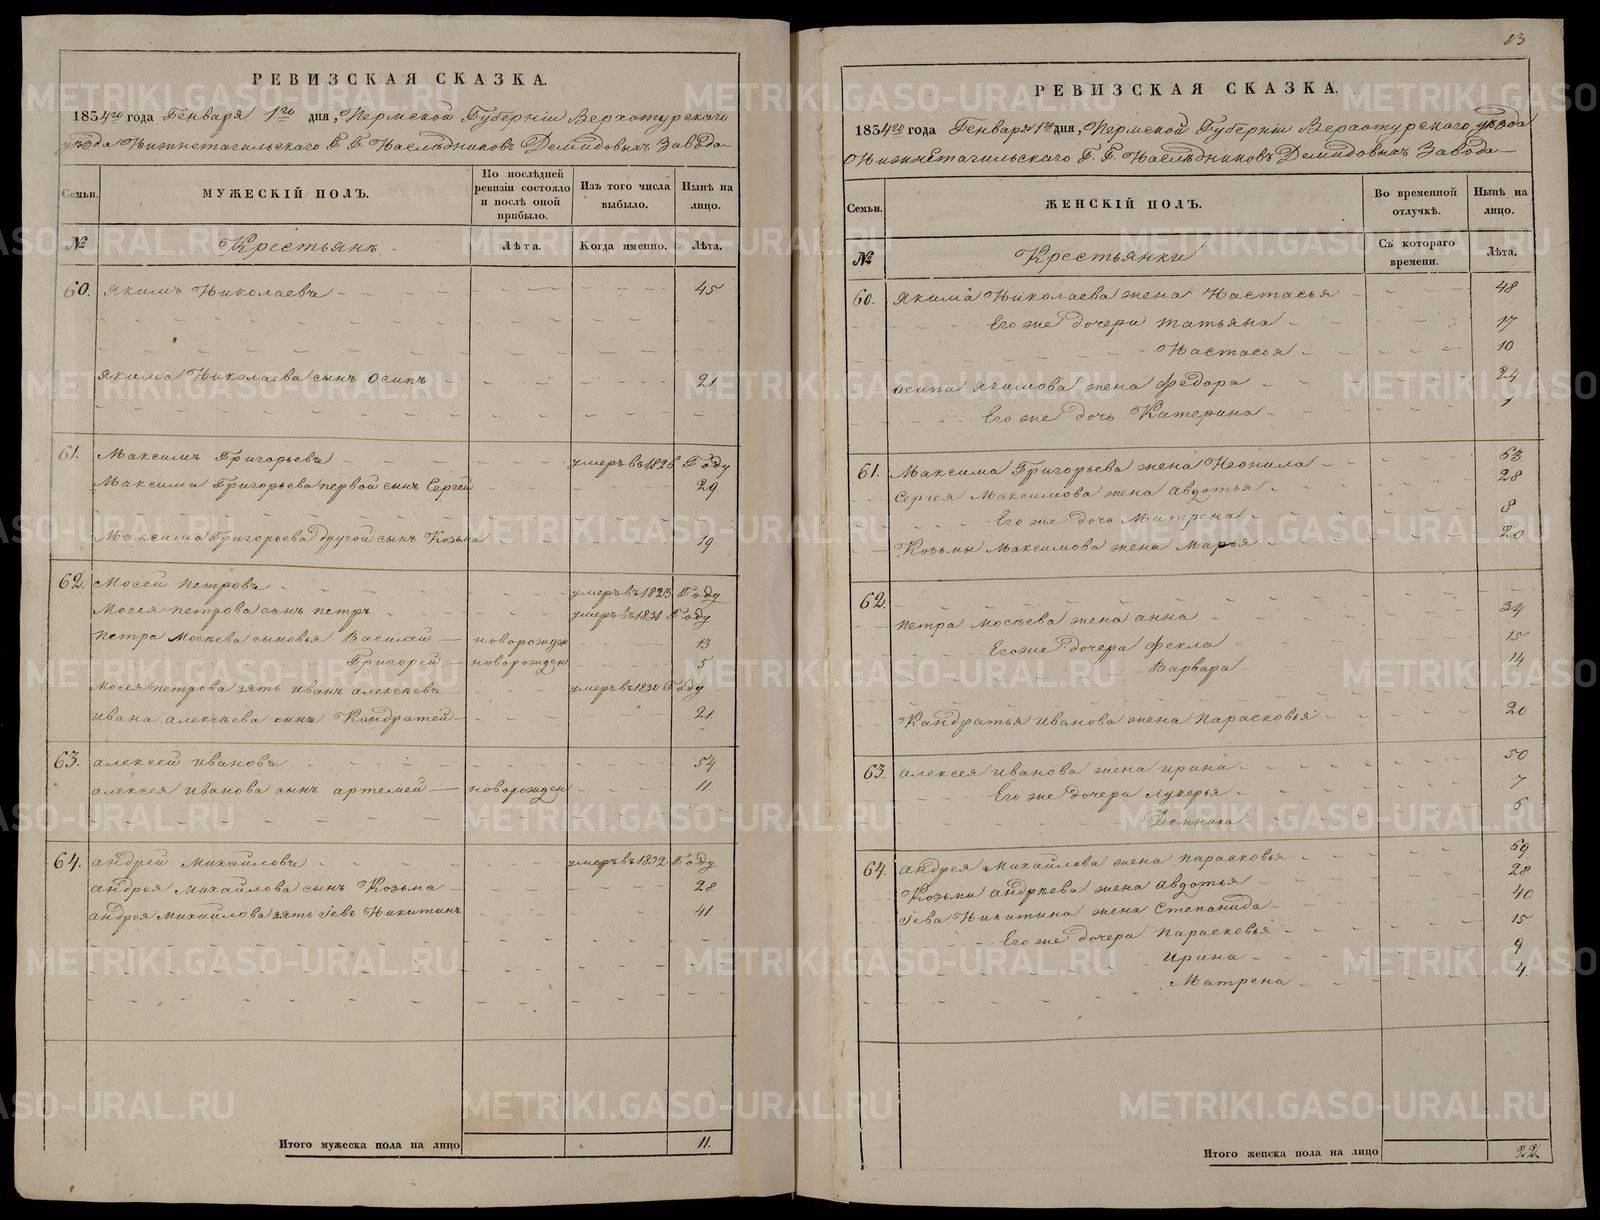 РЕВИЗСКАЯ СКАЗКА.
1834го года Генваря 1го дня, Пермской Губерніи Верхотурскаго
уѣзда Нижнетагильскаго Г. Г. Наслѣдниковъ Демидовыхъ Завода
Семьи.
МУЖЕСКІЙ ПОЛЪ.
По послѣдней ревизіи состояло и послѣ оной прибыло.
Изъ того числа выбыло.
Нынѣ на лицо.
№ Крестьянъ Лѣта. Когда именно. Лѣта.
60. Якимъ Николаевъ 45
Якима Николаева сынъ Осипъ 21
61. Максимъ Григорьевъ умеръ въ 1826 Году
Максима Григорьева первой сынъ Сергей 29
Максима Григорьева другой сынъ Козьма 19
62. Мосей Петровъ умеръ въ 1823 Году
Мосея Петрова сынъ Петръ умеръ въ 1831 Году
Петра Мосѣева сыновья Василей новорожден 13
Григорей новорожден 5
Мосея Петрова зять Иванъ Алексѣевъ умеръ въ 1830 Году
Ивана Алексѣева сынъ Кондратей 21
63. Алексей Ивановъ 54
Алексея Иванова сынъ Артемей новорожден 11
64. Андрей Михайловъ умеръ въ 1832 Году
Андрея Михайлова сынъ Козьма 28
Андрея Михайлова зять Іевъ Никитинъ 41
Итого мужеска пола на лицо 11.
23
РЕВИЗСКАЯ СКАЗКА.
1834го года Генваря 1го дня, Пермской Губерніи Верхотурскаго уѣзда
Нижнетагильскаго Г. Г. Наслѣдниковъ Демидовыхъ Завода
Семьи.
ЖЕНСКІЙ ПОЛЪ.
Во временной отлучкѣ.
Нынѣ на лицо.
№ Крестьянки Съ котораго времени. Лѣта.
60. Якима Николаева жена Настасья 48
Его же дочери Татьяна 17
Настасья 10
Осипа Якимова жена Федора 24
Его же дочь Катерина 1
61. Максима Григорьева жена Неонила 63
Сергея Максимова жена Авдотья 28
Его же дочь Матрена 8
Козьмы Максимова жена Марья 20
62.
Петра Мосѣева жена Анна 34
Его же дочери Фекла 15
Варвара 14
Кандратья Иванова жена Парасковья 20
63. Алексея Иванова жена Ирина 50
Его же дочери Лукерья 7
Домника 6
64. Андрея Михайлова жена Парасковья 69
Козьмы Андрѣева жена Авдотья 28
Іева Никитина жена Степанида 40
Его же дочери Парасковья 15
Ирина 9
Матрена 4.
Итого женска пола на лицо 22.
METRIKI.GASO-URAL.RU